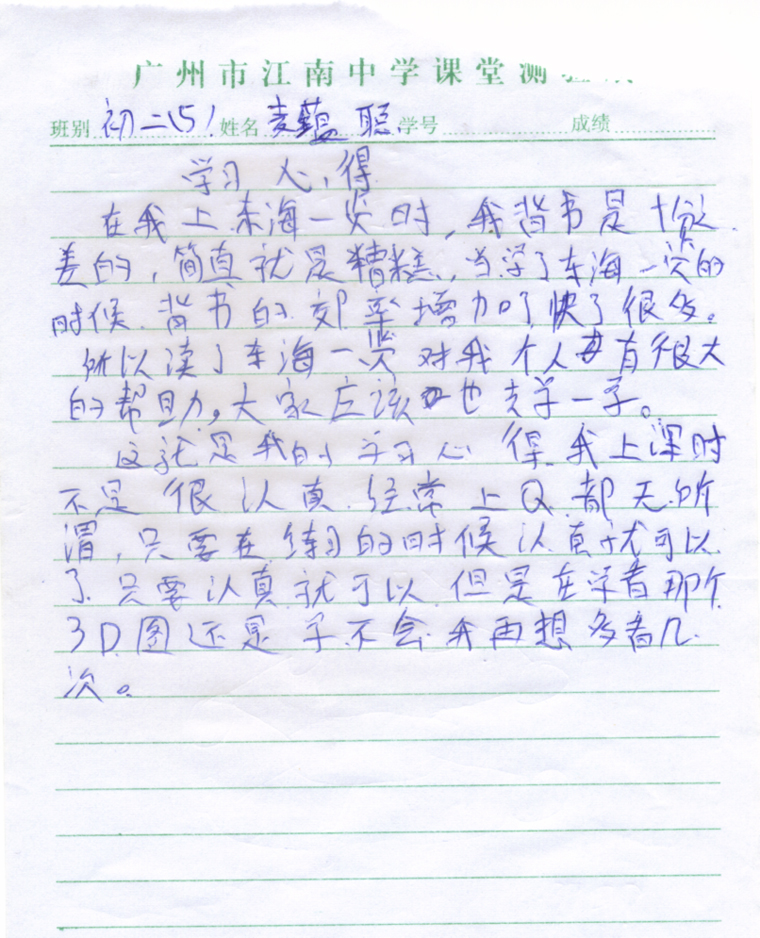 广州市江南中学课堂测验纸
班别 初二(5) 姓名 麦蕴聪 学号 成绩
学习心得
在我上东海一览时,我背书是十分
差的,简直就是糟糕,当学了东海一览的
时候.背书的效率增加了快了很多。
所以读了东海一览对我个人有很大
的帮助。大家应该也去学一学。
这就是我的学习心得.我上课时
不是很认真.经常上Q.都无所
谓,只要在练习的时候认真就可以
了.只要认真就可以.但是在学看那个
3D图还是学不会.我再想多看几
次。